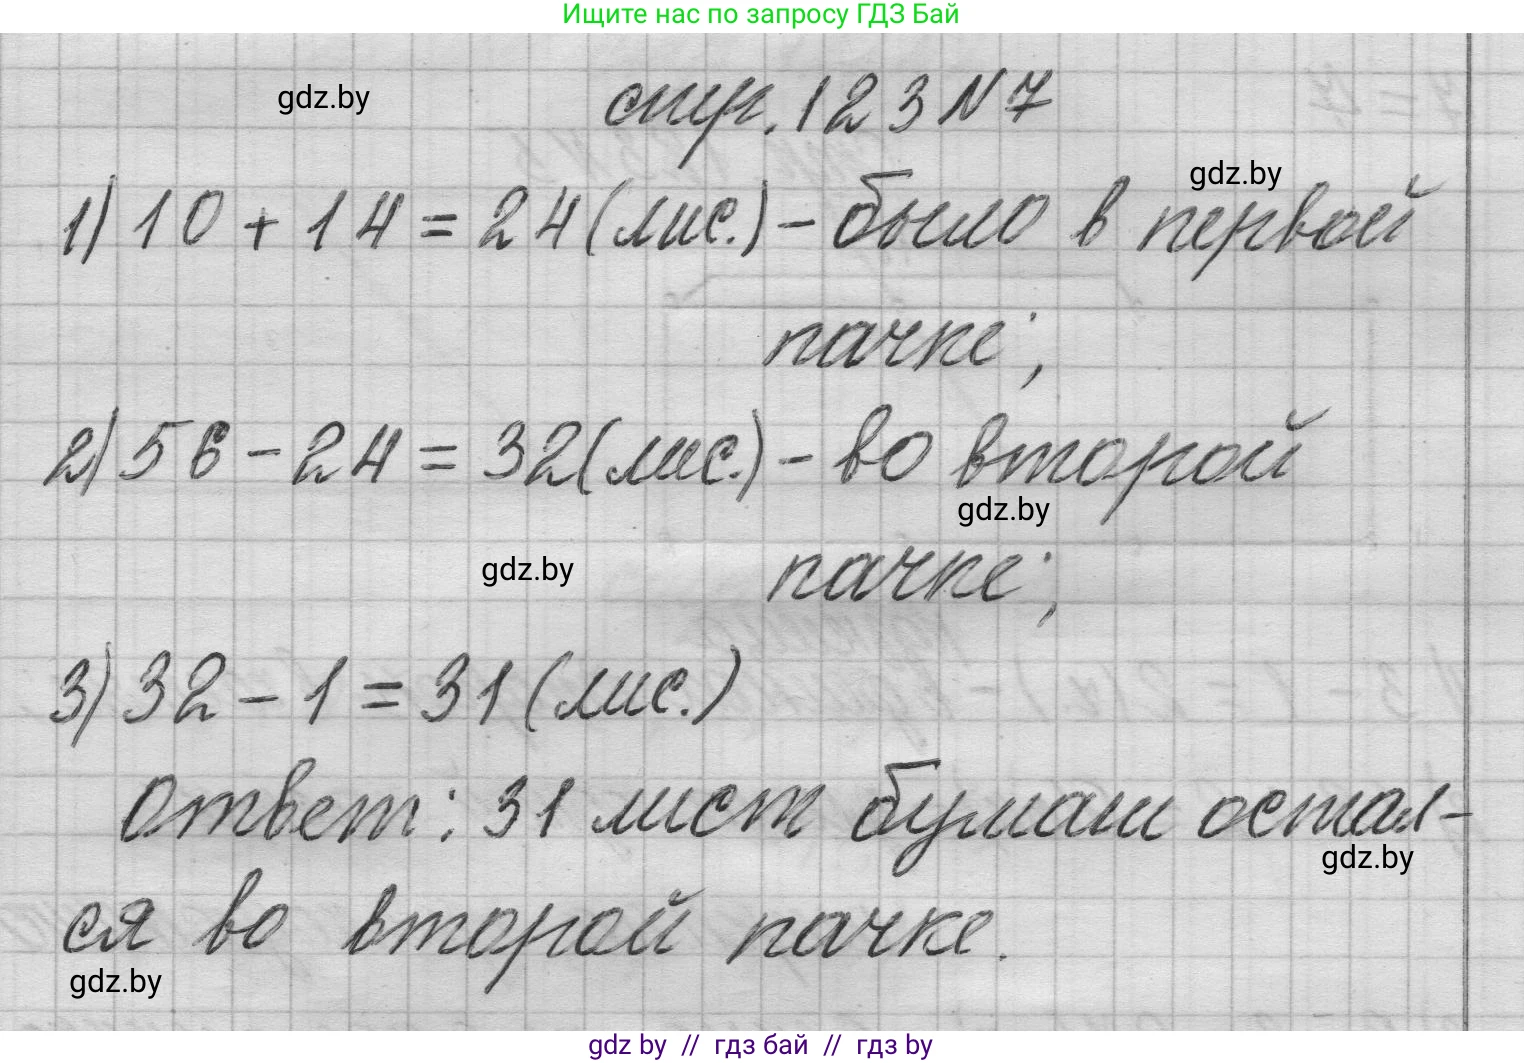 Ищите нас по запросу ГДЗ Бай
gdz.by
стр. 123 N 7
gdz.by
1) 10 + 14 = 24 (лис.) - было в первой
пачке;
2) 56 - 24 = 32 (лис.) - во второй
gdz.by
gdz.by
пачке;
3) 32 - 1 = 31 (лис.)
Ответ: 31 лист бумаги остал-
gdz.by
ся во второй пачке.
gdz.by
gdz by // гдз бай // гдз by